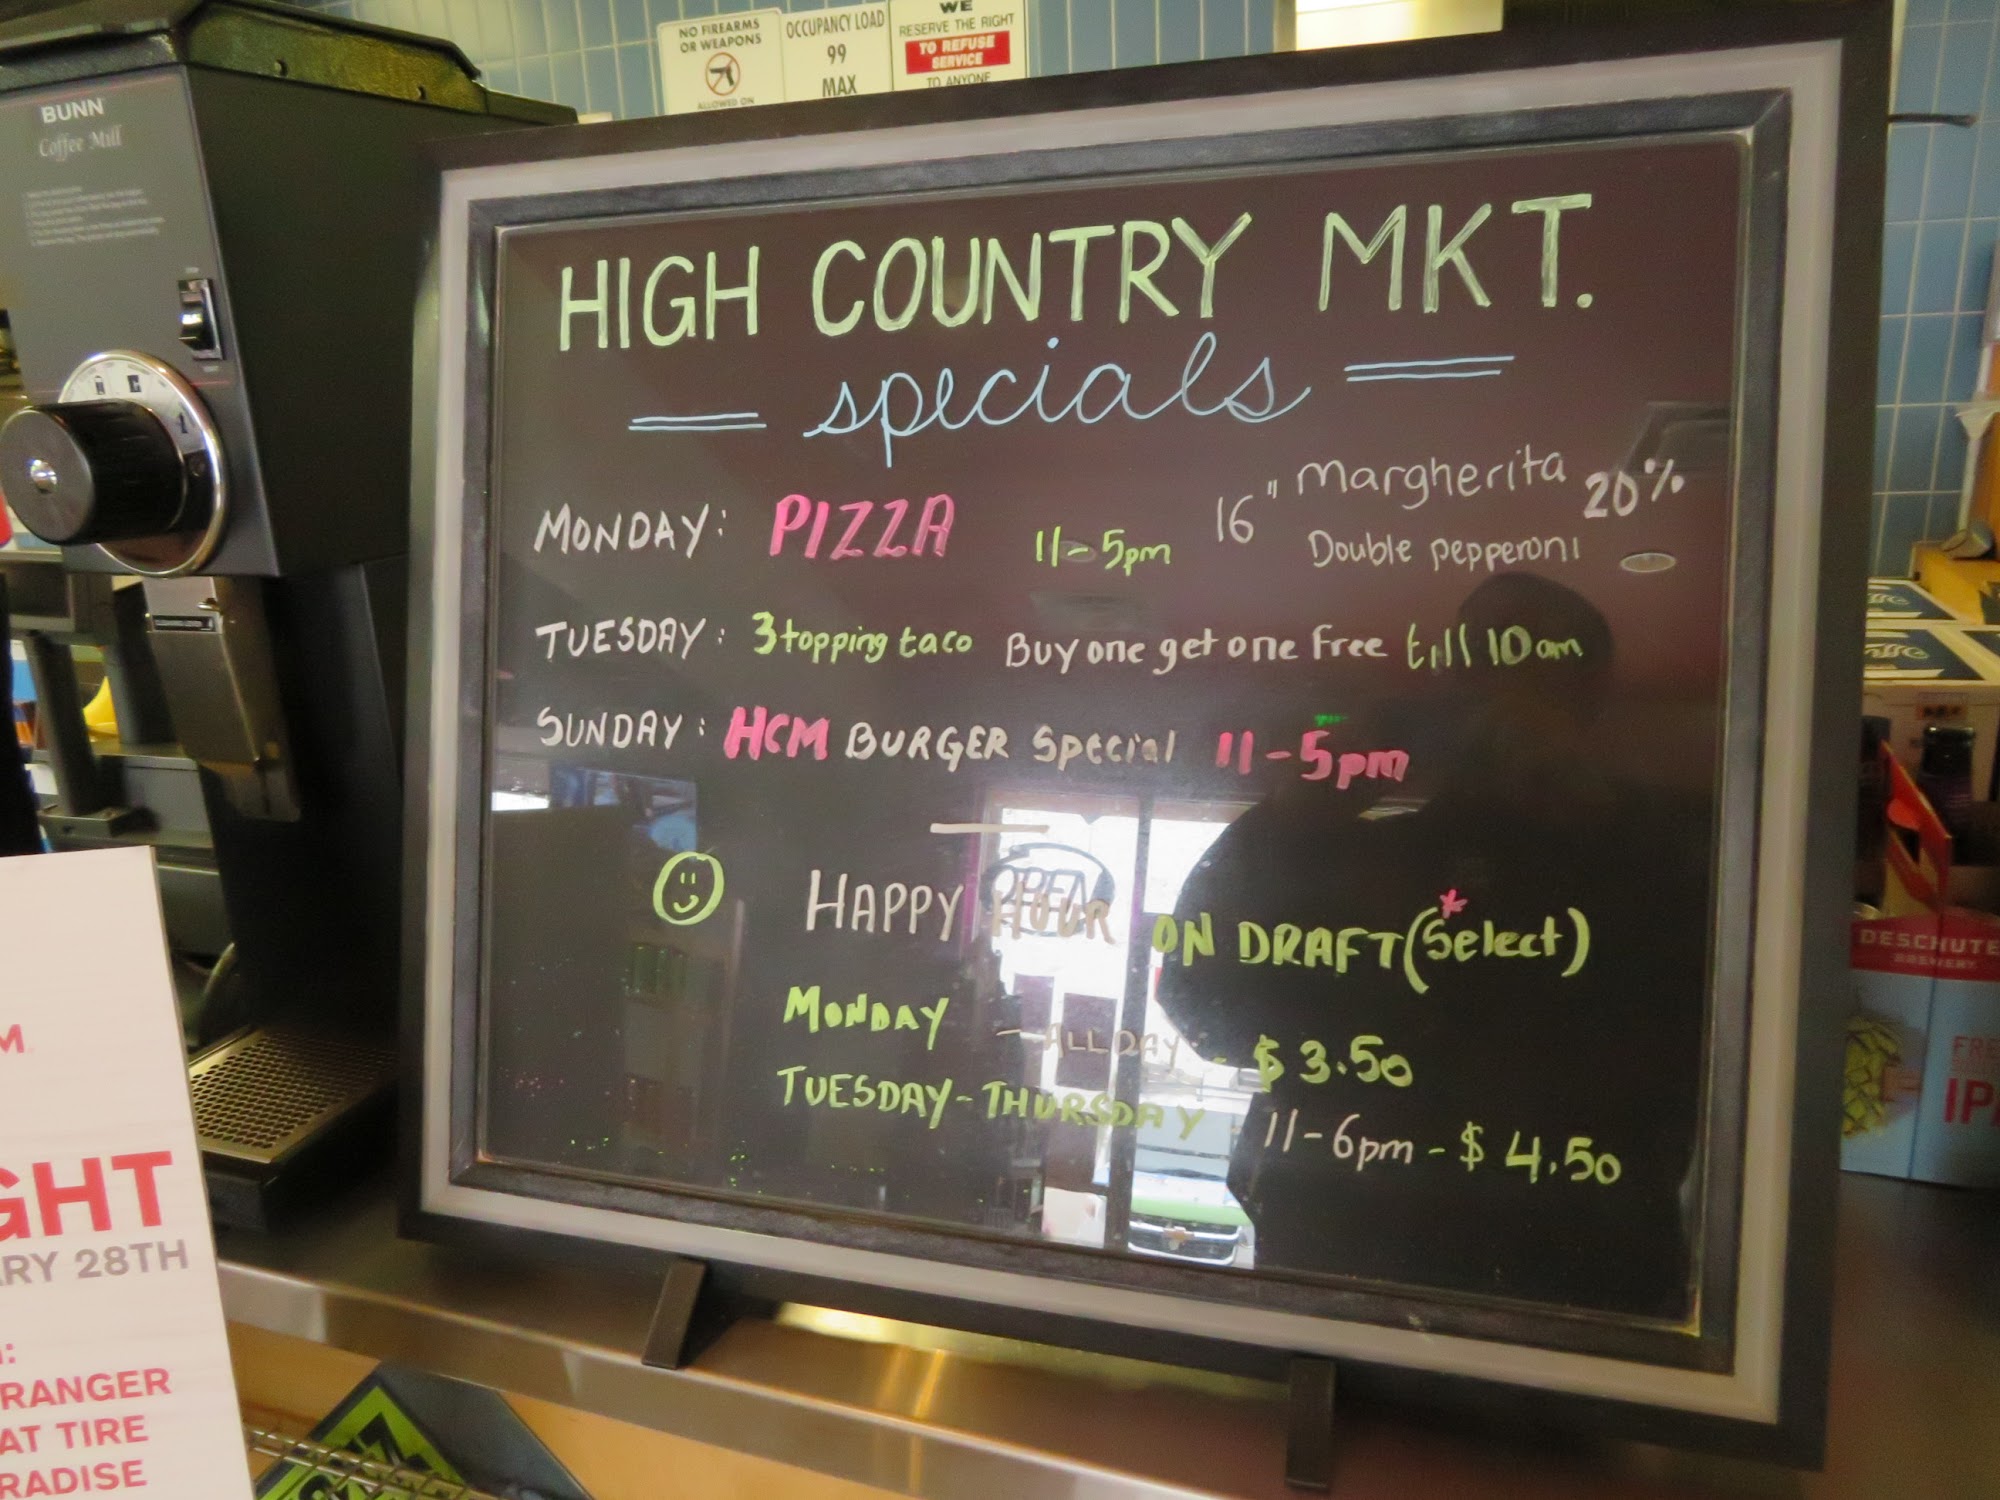 NO FIREARMS
OR WEAPONS
ALLOWED ON
OCCUPANCY LOAD
99
MAX
WE
RESERVE THE RIGHT
TO REFUSE
SERVICE
TO ANYONE
BUNN
Coffee Mill
HIGH COUNTRY MKT.
specials
MONDAY: PIZZA 11-5pm 16" Margherita 20%
Double pepperoni
TUESDAY: 3 topping taco Buy one get one Free till 10am
SUNDAY: HCM BURGER Special 11-5pm
OPEN
HAPPY HOUR ON DRAFT (*Select)
MONDAY - ALL DAY - $3.50
TUESDAY-THURSDAY 11-6pm - $4.50
DESCHUTE
BREWERY
FRE
IP
M
GHT
ARY 28TH
RANGER
AT TIRE
RADISE